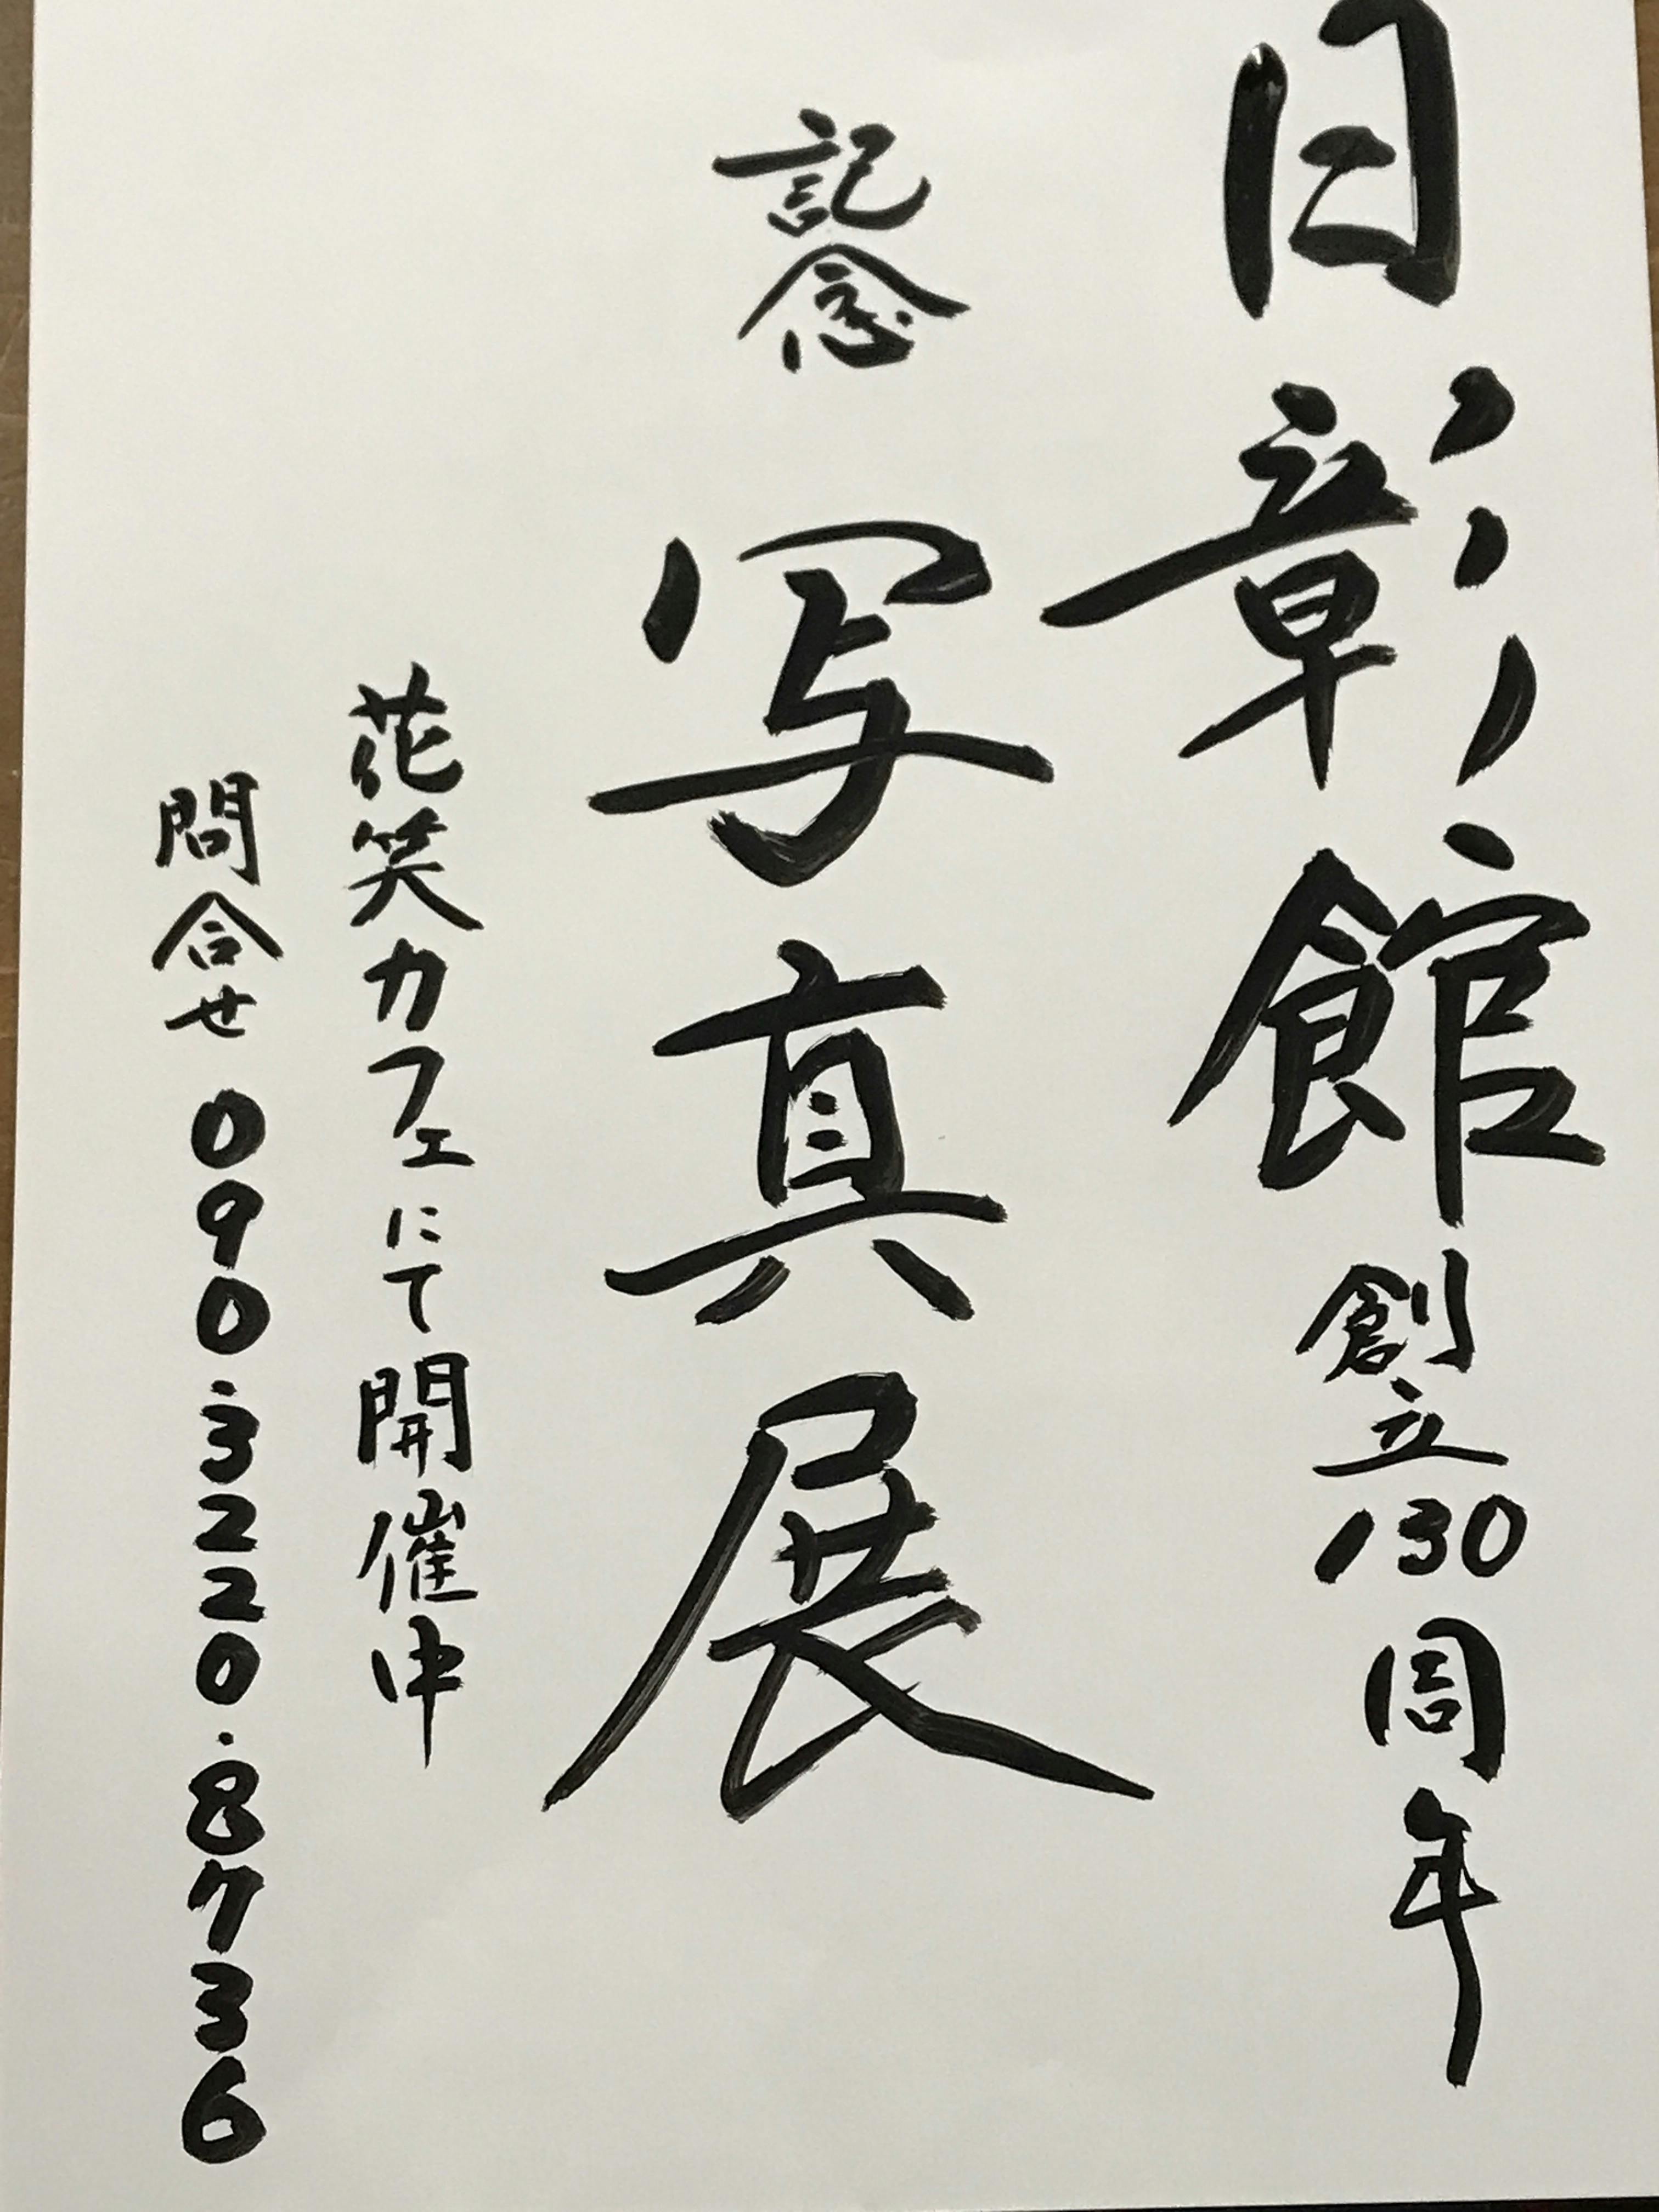 日彰館創立130周年
記念 写真展
花笑カフェにて開催中
問合せ 090・3220・8736